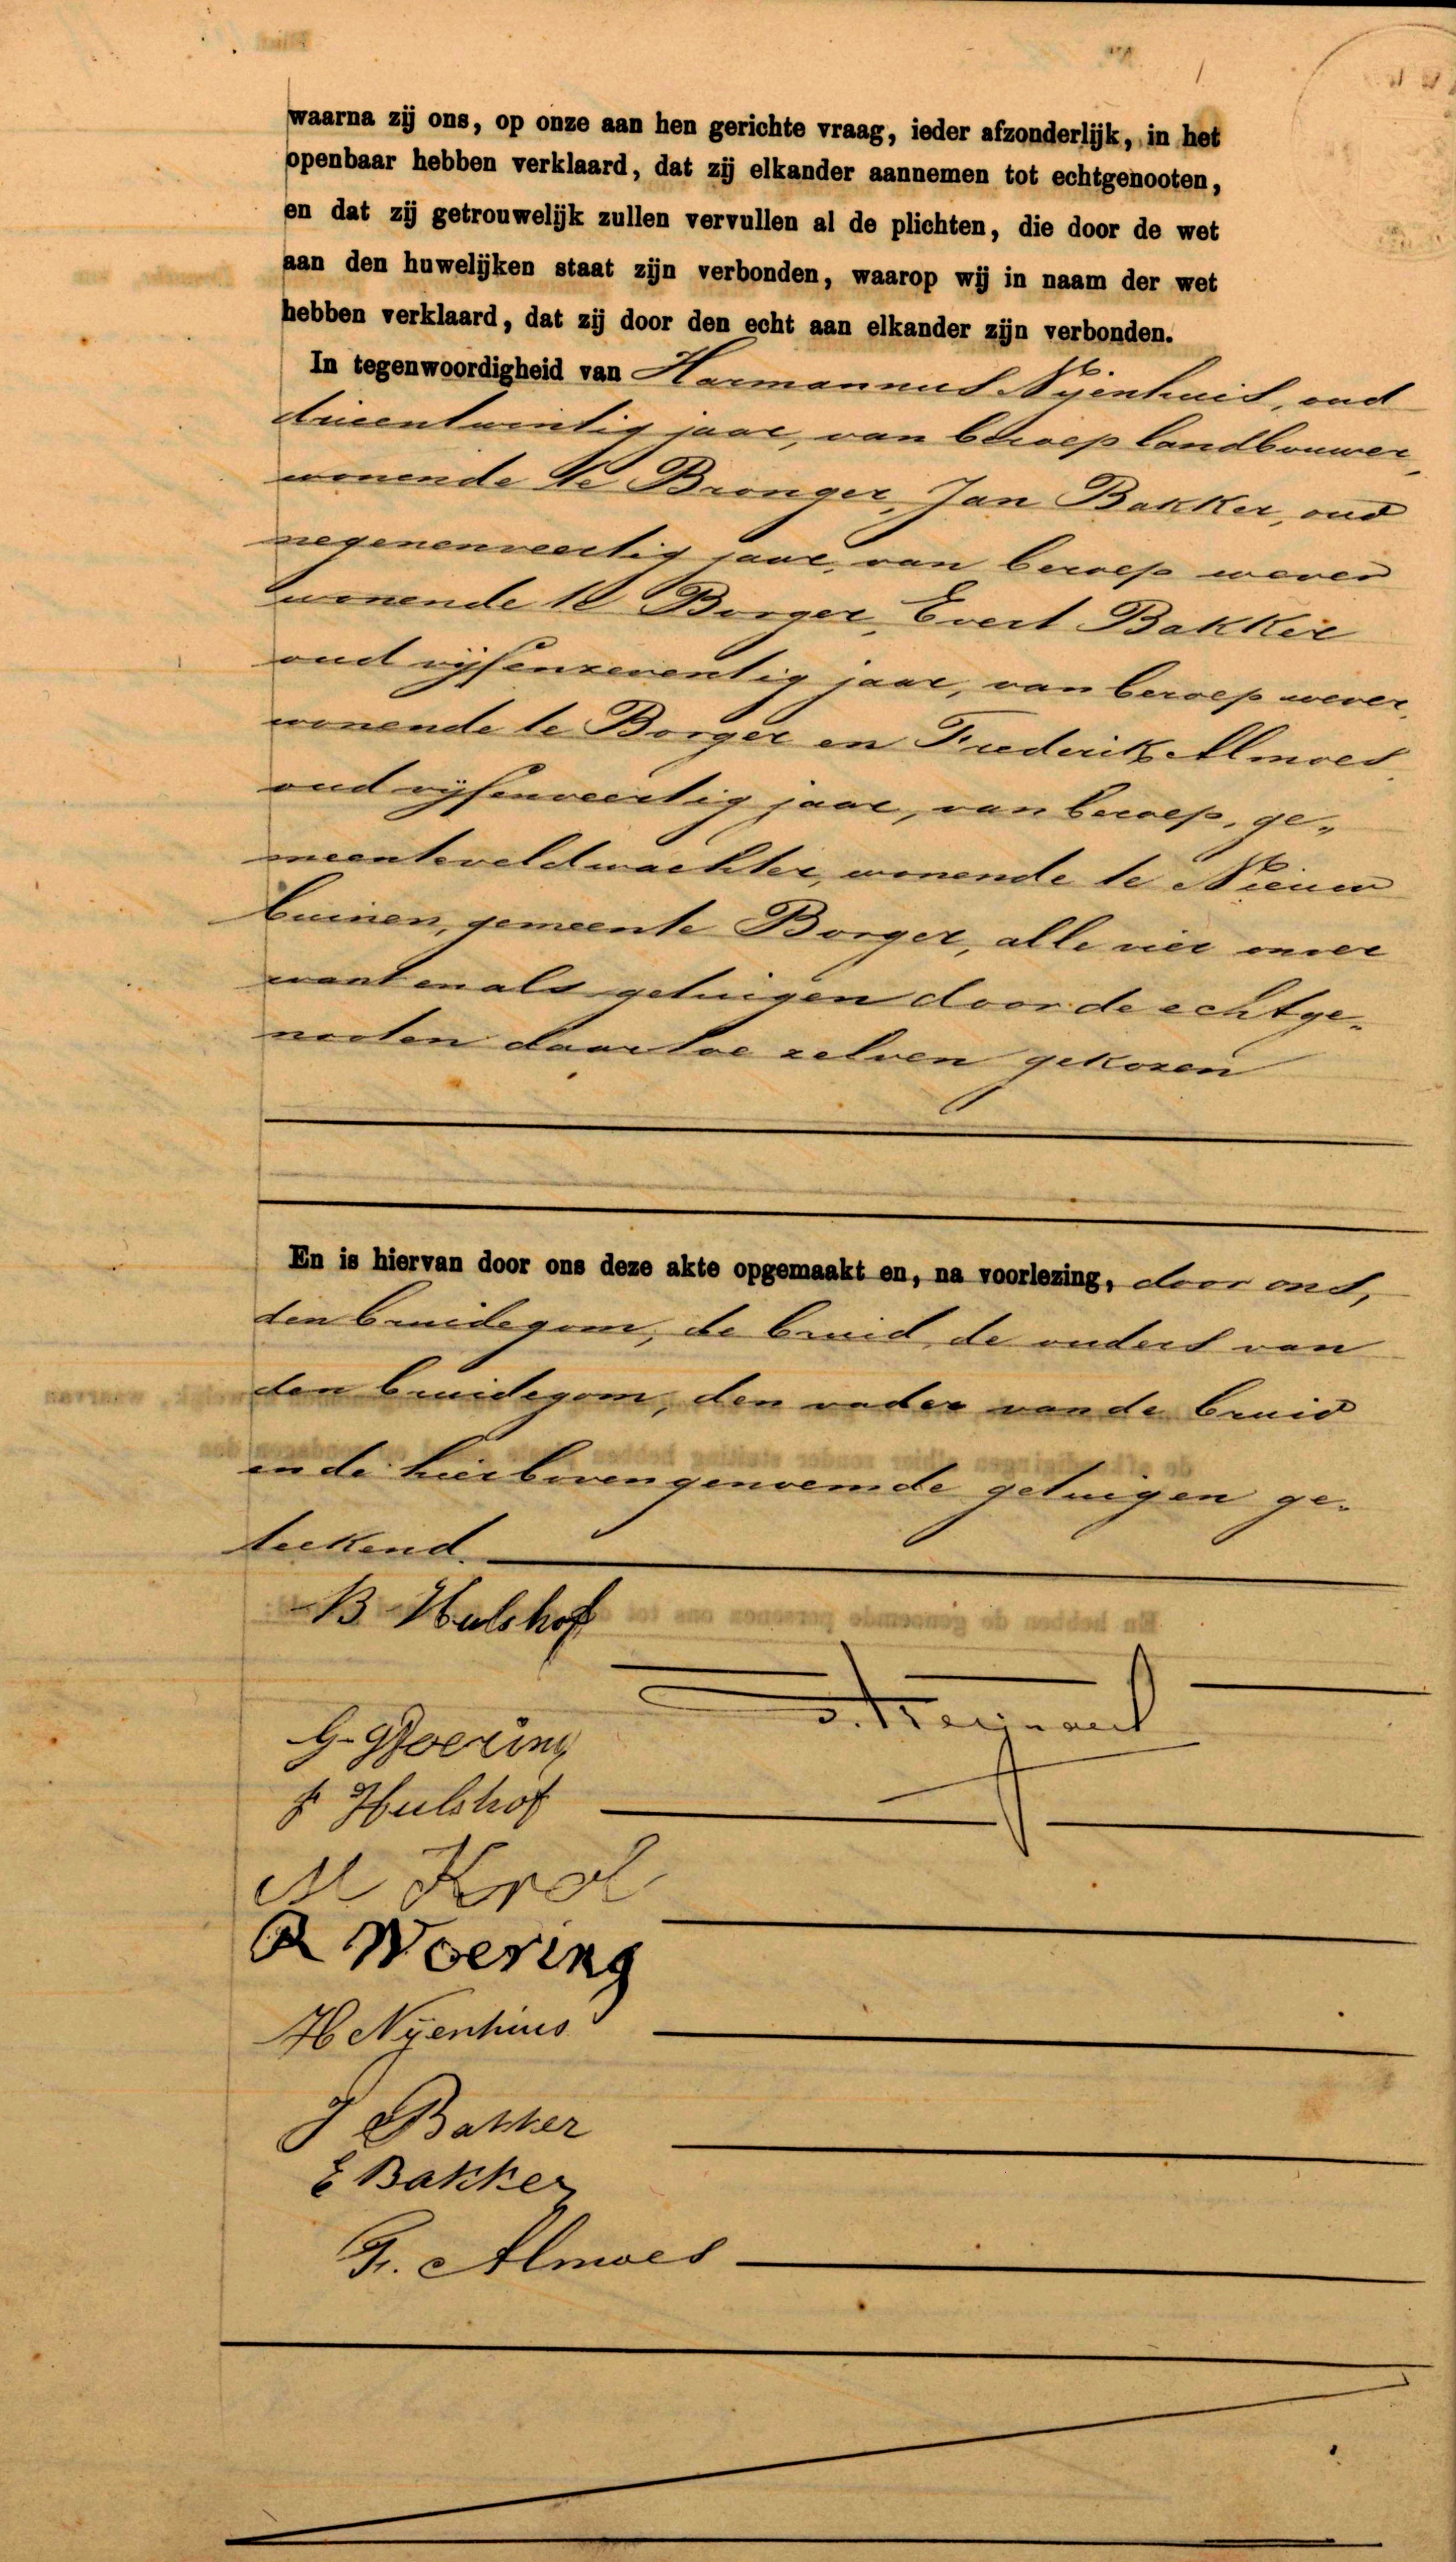 waarna zij ons, op onze aan hen gerichte vraag, ieder afzonderlijk, in het
openbaar hebben verklaard, dat zij elkander aannemen tot echtgenooten,
en dat zij getrouwelijk zullen vervullen al de plichten, die door de wet
aan den huwelijken staat zijn verbonden, waarop wij in naam der wet
hebben verklaard, dat zij door den echt aan elkander zijn verbonden.
In tegenwoordigheid van Harmannus Nijenhuis, oud
drieentwintig jaar, van beroep landbouwer,
wonende te Bronger, Jan Bakker, oud
negenenveertig jaar, van beroep wever
wonende te Borger, Evert Bakker
oud vijfenzeventig jaar, van beroep wever,
wonende te Borger en Frederik Almoes
oud vijfenveertig jaar, van beroep, ge„
meenteveldwachter, wonende te Nieuw
buinen, gemeente Borger, alle vier onver
want en als getuigen door de echtge„
nooten daartoe zelven gekozen
En is hiervan door ons deze akte opgemaakt en, na voorlezing, door ons,
den bruidegom, de bruid, de ouders van
den bruidegom, den vader van de bruid
en de hierbovengenoemde getuigen ge„
teekend.
B Hulshof
G. Woering
F Hulshof
M Krol
R Woering
H Nijenhuis
J Bakker
E Bakker
Fr. Almoes